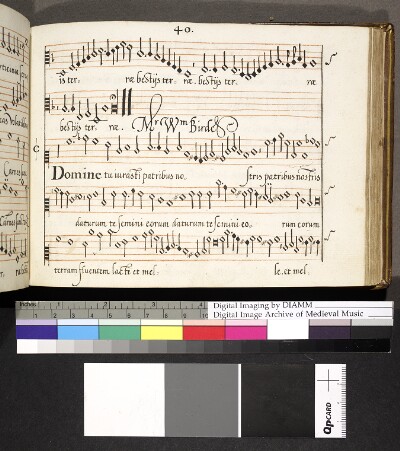 40.
is ter: ræ bestijs ter: ræ. bestijs ter: ræ
bestijs ter: ræ. Mr Wm Birde
C
Domine tu iurasti patribus no, stris patribus nostris
daturum te semini eorum daturum te semini eo, rum eorum
terram fluentem lacti et mel: le. et mel:
inches 1 2 3 4
Digital Imaging by DIAMM
Digital Image Archive of Medieval Music
QPCARD